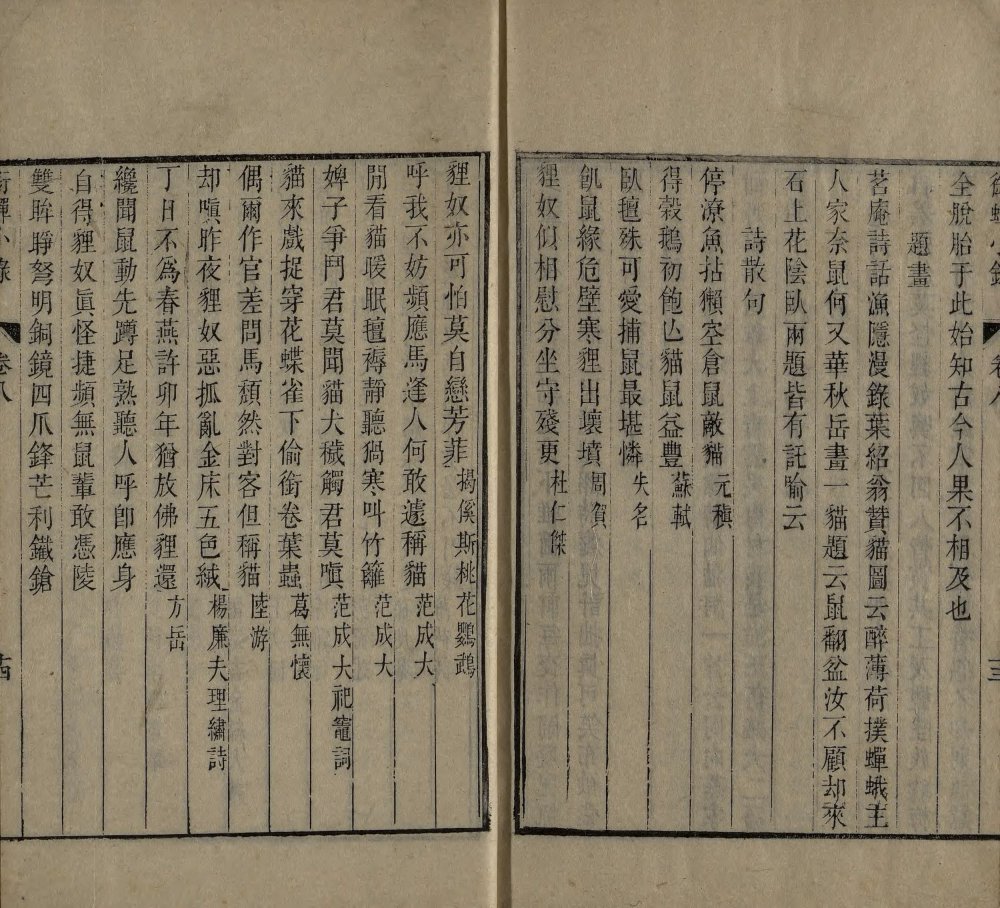 銜蟬小錄
卷八
三
全脫胎于此始知古今人果不相及也
題畫
茗庵詩話漁隱漫錄葉紹翁贊貓圖云醉薄荷撲蟬蛾主
人家奈鼠何又華秋岳畫一貓題云鼠翻盆汝不顧却來
石上花陰臥兩題皆有託喻云
詩散句
停潦魚招獺空倉鼠敵貓 元稹
得穀鵝初飽亾貓鼠益豐 蘇軾
臥氊殊可愛捕鼠最堪憐 失名
飢鼠緣危壁寒狸出壞墳 周賀
貍奴似相慰分坐守殘更 杜仁傑
貍奴亦可怕莫自戀芳菲 揭傒斯桃花鸚鵡
呼我不妨頻應馬逢人何敢遽稱貓 范成大
閒看貓暖眠氊褥靜聽猧寒叫竹籬 范成大
婢子爭鬥君莫聞貓犬穢觸君莫嗔 范成大祀竈詞
貓來戲捉穿花蝶雀下偷銜卷葉蟲 葛無懷
偶爾作官羞問馬頹然對客但稱貓 陸游
却嗔昨夜貍奴惡抓亂金床五色絨 楊廉夫理繡詩
丁日不爲春燕許卯年猶放佛貍還 方岳
纔聞鼠動先蹲足熟聽人呼卽應身
自得貍奴眞怪捷頻無鼠輩敢憑陵
雙眸睜弩明銅鏡四爪鋒芒利鐵鎗
銜蟬小錄
卷八
古